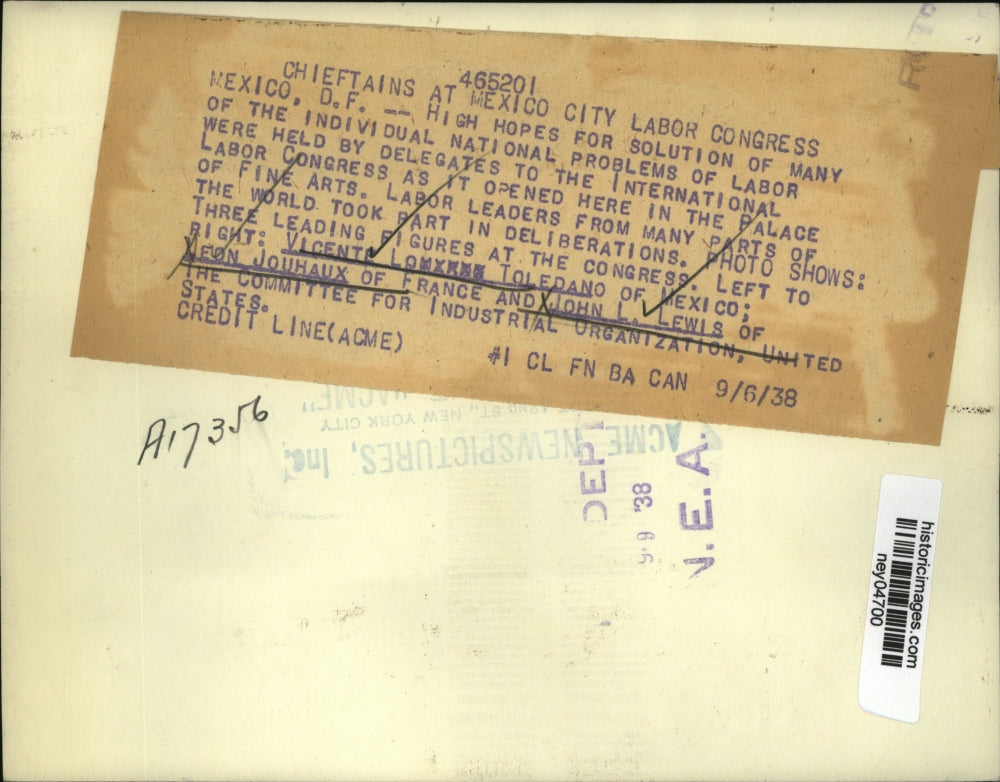 465201
CHIEFTAINS AT MEXICO CITY LABOR CONGRESS
MEXICO, D.F. -- HIGH HOPES FOR SOLUTION OF MANY
OF THE INDIVIDUAL NATIONAL PROBLEMS OF LABOR
WERE HELD BY DELEGATES TO THE INTERNATIONAL
LABOR CONGRESS AS IT OPENED HERE IN THE PALACE
OF FINE ARTS. LABOR LEADERS FROM MANY PARTS OF
THE WORLD TOOK PART IN DELIBERATIONS. PHOTO SHOWS:
THREE LEADING FIGURES AT THE CONGRESS. LEFT TO
RIGHT: VICENTE LOMXXXX TOLEDANO OF MEXICO;
LEON JOUHAUX OF FRANCE AND JOHN L. LEWIS OF
THE COMMITTEE FOR INDUSTRIAL ORGANIZATION, UNITED
STATES.
CREDIT LINE(ACME)
#1 CL FN BA CAN 9/6/38
A17356
ACME NEWSPICTURES, Inc.
42ND ST., NEW YORK CITY
"ACME"
DEPT
'38
N.E.A.
historicimages.com
ney04700